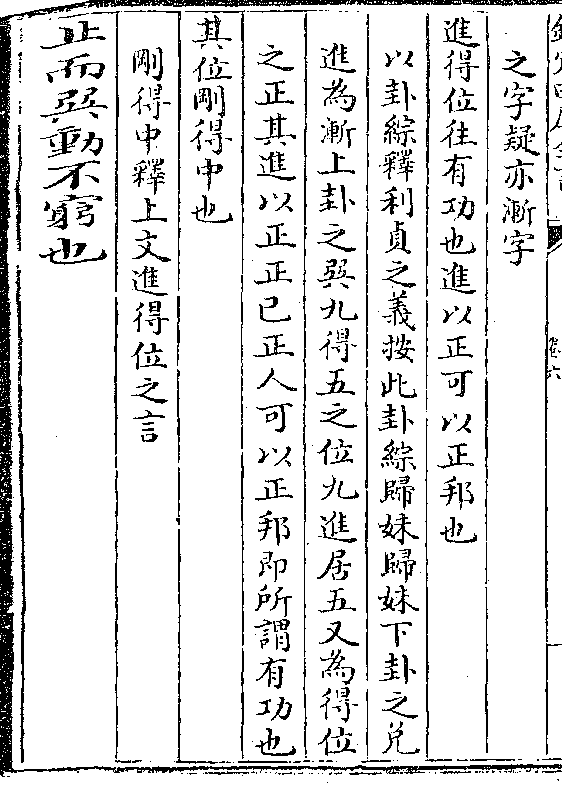 欽定四庫全書
卷六
之字疑亦漸字
進得位往有功也進以正可以正邦也
以卦綜釋利貞之義按此卦綜歸妹歸妹下卦之兑
進為漸上卦之巽九得五之位九進居五又為得位
之正其進以正正已正人可以正邦即所謂有功也
其位剛得中也
剛得中釋上文進得位之言
止而巽動不窮也